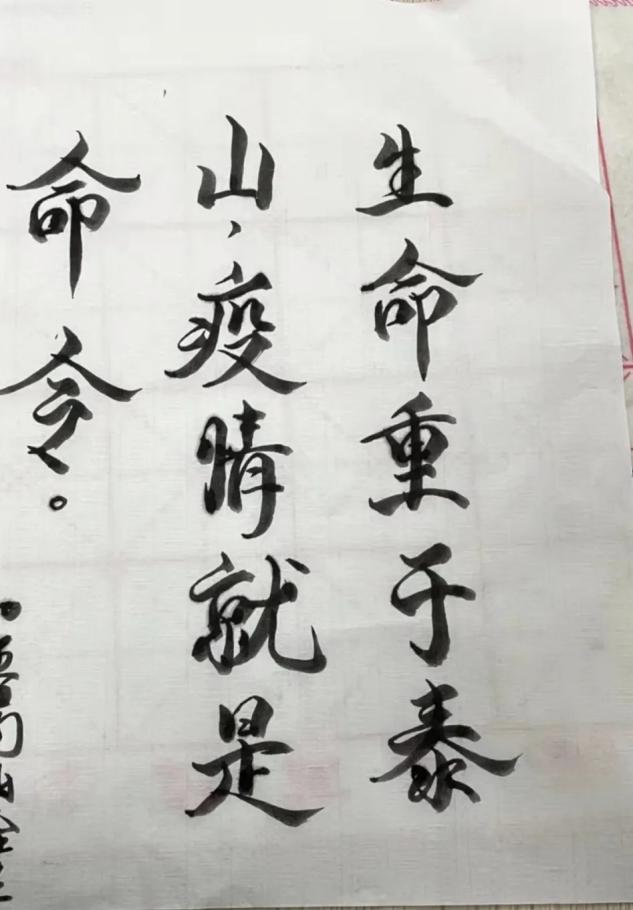 生命重于泰
山，疫情就是
命令。